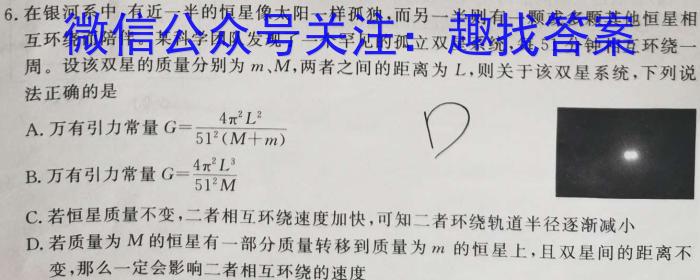 6. 在银河系中,有近一半的恒星像太阳一样孤独,而另一半则有一颗或多颗其他恒星相
互环绕 陪伴 来科学 发现 一 罕见的孤立双 系统, 51 分钟 互环绕一
微信公众号关注：趣找答案
周。设该双星的质量分别为 m、M,两者之间的距离为 L,则关于该双星系统,下列说
法正确的是
A. 万有引力常量 G=4π²L²/51²(M+m)
B. 万有引力常量 G=4π²L³/51²M
C. 若恒星质量不变,二者相互环绕速度加快,可知二者环绕轨道半径逐渐减小
D. 若质量为 M 的恒星有一部分质量转移到质量为 m 的恒星上,且双星间的距离不
变,那么一定会影响二者相互环绕的速度
D